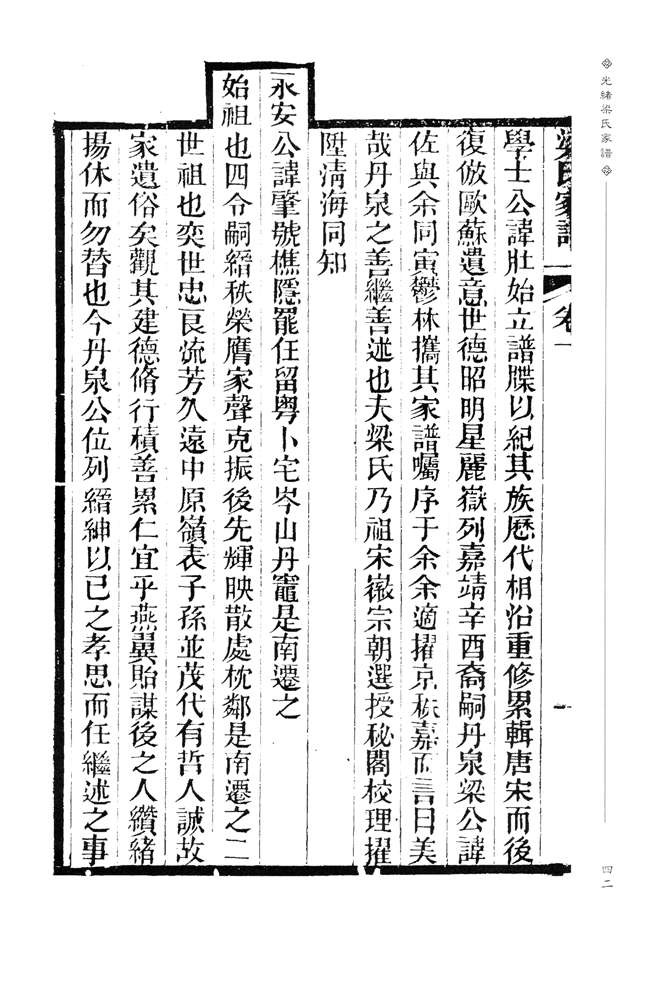 光緒梁氏家譜
四二
梁氏家譜 卷一 一
學士公諱壯始立譜牒以紀其族歷代相沿重修累輯唐宋而後
復倣歐蘇遺意世德昭明星麗嶽列嘉靖辛酉裔嗣丹泉梁公諱
佐與余同寅鬱林攜其家譜囑序于余余適擢京秩嘉而言曰美
哉丹泉之善繼善述也夫梁氏乃祖宋徽宗朝選授秘閣校理擢
陞清海同知
永安公諱肇號樵隱罷任留粵卜宅岑山丹竈是南遷之
始祖也四令嗣縉秩榮膺家聲克振後先輝映散處枕鄰是南遷之二
世祖也奕世忠良流芳久遠中原嶺表子孫並茂代有哲人誠故
家遺俗矣觀其建德脩行積善累仁宜乎燕翼貽謀後之人纘緒
揚休而勿替也今丹泉公位列縉紳以己之孝思而任繼述之事